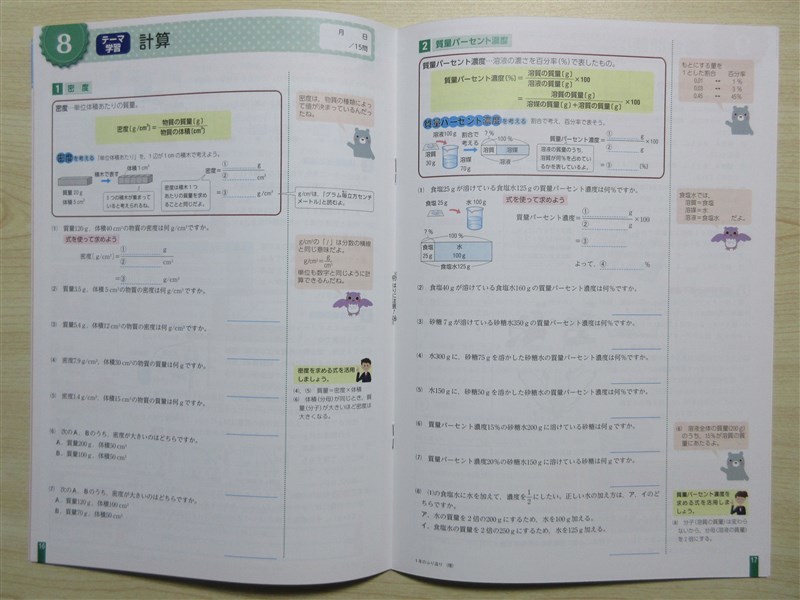 8
テーマ
学習
計算
月　日
/15問
1 密度
密度…単位体積あたりの質量。
密度〔g/cm³〕＝物質の質量〔g〕
物質の体積〔cm³〕
密度を考える 「単位体積あたり」を、1辺が1cmの積木で考えよう。
積木で表す
体積1cm³
体積5cm³
密度は積木1つ
あたりの質量を求め
ることと同じだよ。
密度＝① g
② cm³
＝③ g/cm³
(1) 質量120g、体積40cm³の物質の密度は何g/cm³ですか。
式を使って求めよう
密度〔g/cm³〕＝① g
② cm³
＝③ g/cm³
(3) 質量8.4g、体積12cm³の物質の密度は何g/cm³ですか。
(4) 密度7.9g/cm³、体積30cm³の物質の質量は何gですか。
(6) 次のA、Bのうち、密度が大きいのはどちらですか。
A．質量200g、体積50cm³
B．質量100g、体積50cm³
(7) 次のA、Bのうち、密度が大きいのはどちらですか。
密度は、物質の種類によっ
て値が決まっているんだっ
たね。
g/cm³は、「グラム毎立方センチ
メートル」と読むよ。
g/cm³の「/」は分数の横線
と同じ意味だよ。
g/cm³＝g
cm³
単位も数学と同じように計
算できるんだね。
密度を求める式を活用
しましょう。
(4)、(5) 質量＝密度×体積
(6) 体積(分母)が同じとき、質
量(分子)が大きいほど密度は
大きくなる。
2 質量パーセント濃度
質量パーセント濃度…溶液の濃さを百分率(%)で表したもの。
質量パーセント濃度〔%〕＝溶質の質量〔g〕
溶液の質量〔g〕×100
＝溶質の質量〔g〕
溶媒の質量〔g〕＋溶質の質量〔g〕×100
質量パーセント濃度を考える 割合で考え、百分率で表そう。
溶液100g
割合で
考える
?%
100%
溶質
溶媒
溶質
30g
溶媒
70g
溶液の質量のうち、
溶質が何%を占めてい
るかを求めるんだよ。
質量パーセント濃度＝① g
② g×100
＝③ (%)
(1) 食塩25gが溶けている食塩水125gの質量パーセント濃度は何%ですか。
食塩 25g
水 100g
式を使って求めよう
質量パーセント濃度＝① g
② g×100
＝③ g
g×100
よって、④ %
?%
100%
食塩
25g
水
100g
食塩水125g
(2) 食塩40gが溶けている食塩水160gの質量パーセント濃度は何%ですか。
(3) 砂糖7gが溶けている砂糖水350gの質量パーセント濃度は何%ですか。
(4) 水300gに、砂糖75gを溶かした砂糖水の質量パーセント濃度は何%ですか。
(5) 水150gに、砂糖50gを溶かした砂糖水の質量パーセント濃度は何%ですか。
(6) 質量パーセント濃度15%の砂糖水200gに溶けている砂糖は何gですか。
(7) 質量パーセント濃度20%の砂糖水150gに溶けている砂糖は何gですか。
(8) (1)の食塩水に水を加えて、濃度を1/2にしたい。正しい水の加え方は、ア、イのど
ちらですか。
ア．水の質量を2倍の200gにするため、水を100g加える。
イ．食塩水の質量を2倍の250gにするため、水を125g加える。
もとにする量を
1とした割合 百分率
0.01 ↔ 1%
0.03 ↔ 3%
0.45 ↔ 45%
食塩水では、
溶質＝食塩
溶媒＝水
溶液＝食塩水 だよ。
(6) 溶液全体の質量(200g)
のうち、15%が溶質の質
量にあたるよ。
質量パーセント濃度を
求める式を活用しまし
ょう。
(8) 分子(溶質の質量)は変わら
ないから、分母(溶液の質量)
を2倍にする。
17